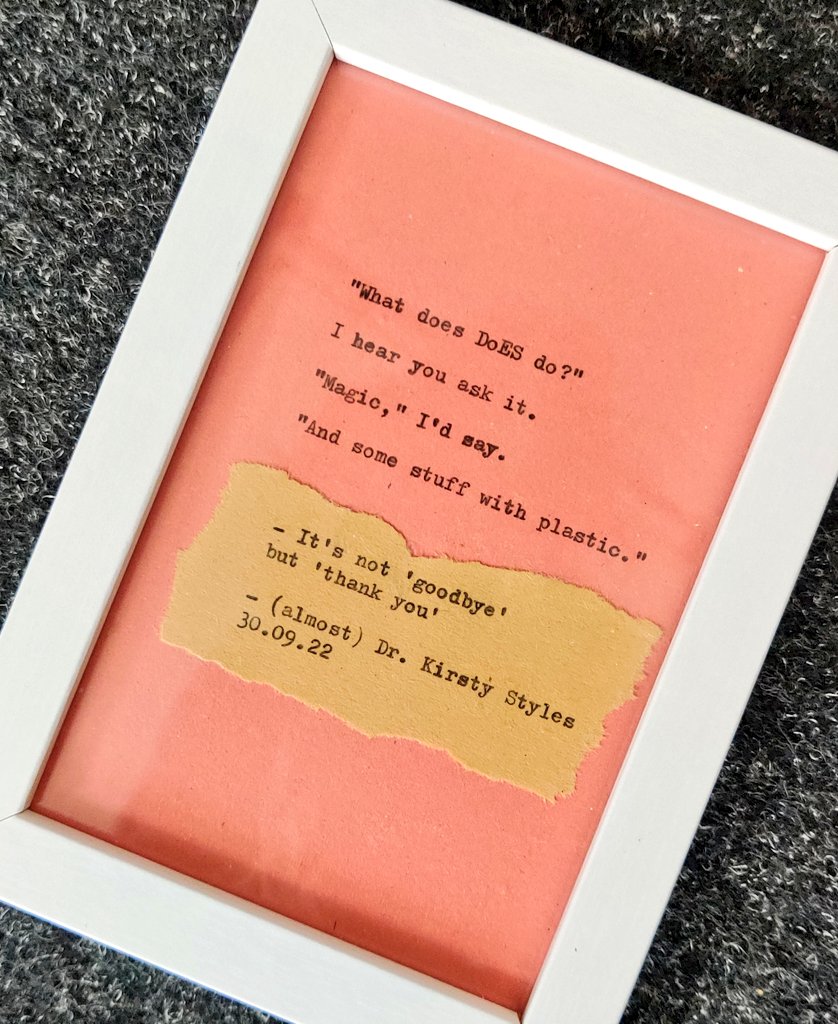 "What does DoES do?"
I hear you ask it.
"Magic," I'd say.
"And some stuff with plastic."
- It's not 'goodbye'
but 'thank you'
- (almost) Dr. Kirsty Styles
30.09.22